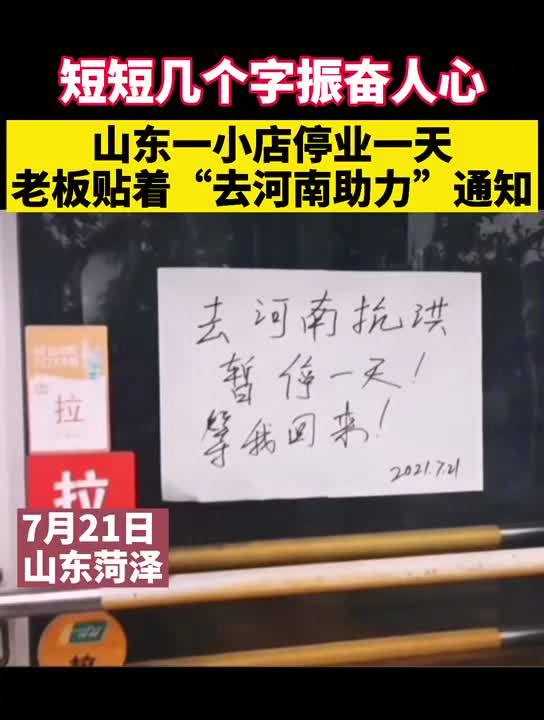 短短几个字振奋人心
山东一小店停业一天
老板贴着“去河南助力”通知
去河南抗洪
暂停一天！
等我回来！
2021.7.21
拉
拉
7月21日
山东菏泽